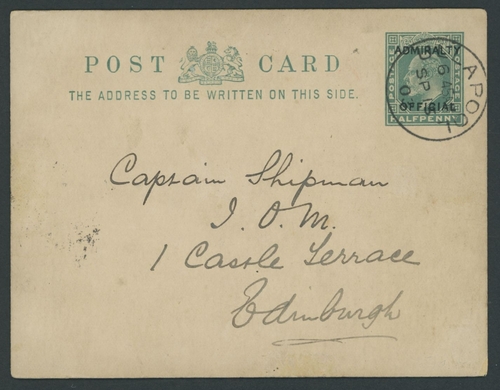 POST CARD
THE ADDRESS TO BE WRITTEN ON THIS SIDE.
ADMIRALTY
OFFICIAL
HALFPENNY
Captain Shipman
I.O.M.
1 Castle Terrace
Edinburgh